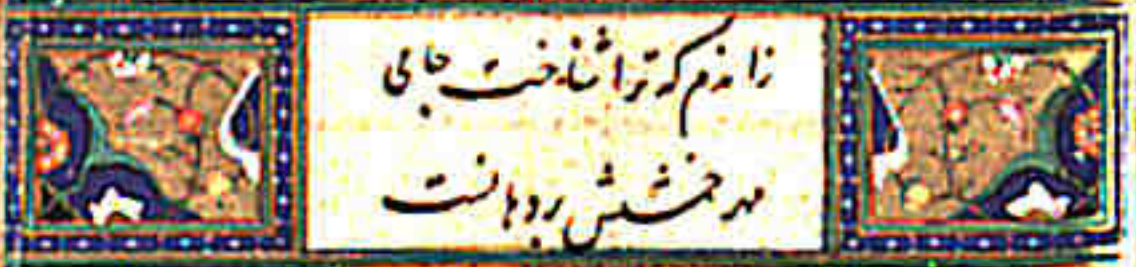 زاندم که ترا شناخت جامی
مهر خمشیش بر دهانست